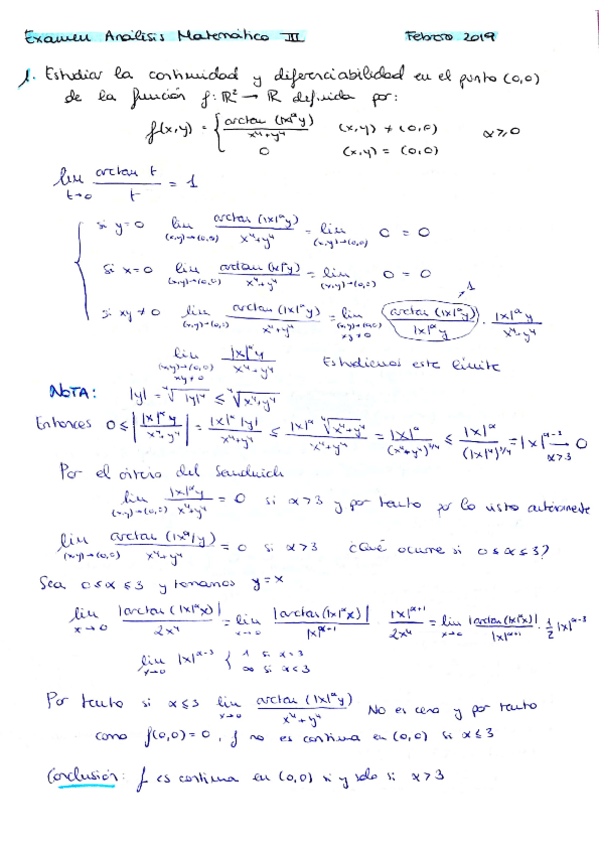 Examen Análisis Matemático III Febrero 2019
1. Estudiar la continuidad y diferenciabilidad en el punto (0,0)
de la función f: ℝ² → ℝ definida por:
f(x,y) = { arctan (|x|^α y) / (x⁴+y⁴) (x,y) ≠ (0,0) α ≥ 0
0 (x,y) = (0,0)
lim_{t→0} arctan t / t = 1
si y=0 lim_{(x,y)→(0,0)} arctan (|x|^α y) / (x⁴+y⁴) = lim_{(x,y)→(0,0)} 0 = 0
si x=0 lim_{(x,y)→(0,0)} arctan (|x|^α y) / (x⁴+y⁴) = lim_{(x,y)→(0,0)} 0 = 0
1
si xy≠0 lim_{(x,y)→(0,0)} arctan (|x|^α y) / (x⁴+y⁴) = lim_{(x,y)→(0,0) xy≠0} arctan (|x|^α y) / |x|^α y · |x|^α y / (x⁴+y⁴)
lim_{(x,y)→(0,0) xy≠0} |x|^α y / (x⁴+y⁴) Estudiemos este límite
NOTA: |y| = ⁴√|y|⁴ ≤ ⁴√(x⁴+y⁴)
Entonces 0 ≤ | |x|^α y / (x⁴+y⁴) | = |x|^α |y| / (x⁴+y⁴) ≤ |x|^α ⁴√(x⁴+y⁴) / (x⁴+y⁴) = |x|^α / (x⁴+y⁴)^{3/4} ≤ |x|^α / (|x|⁴)^{3/4} = |x|^{α-3} → 0 α>3
Por el criterio del Sandwich
lim_{(x,y)→(0,0)} |x|^α y / (x⁴+y⁴) = 0 si α>3 y por tanto por lo visto anteriormente
lim_{(x,y)→(0,0)} arctan (|x|^α y) / (x⁴+y⁴) = 0 si α>3 ¿Qué ocurre si 0≤α≤3?
Sea 0≤α≤3 y tomamos y=x
lim_{x→0} |arctan (|x|^α x)| / 2x⁴ = lim_{x→0} |arctan (|x|^α x)| / |x|^{α+1} · |x|^{α+1} / 2x⁴ = lim_{x→0} |arctan (|x|^α x)| / |x|^{α+1} · 1/2 |x|^{α-3}
lim_{x→0} |x|^{α-3} { 1 si α=3
∞ si α<3
Por tanto si α≤3 lim_{x→0} arctan (|x|^α y) / (x⁴+y⁴) No es cero y por tanto
como f(0,0)=0, f no es continua en (0,0) si α≤3
Conclusión: f es continua en (0,0) si y solo si α>3